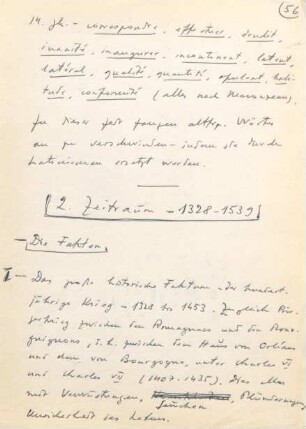 (56)
14. Jh. – correspondre, effectuer, érudit,
immunité, inaugurer, incontinent, latent,
latéral, qualité, quantité, opulent, habi-
tude, conformité (alles nach Neumayer).
In dieser Zeit fangen altfrz. Wörter
an zu verschwinden – indem sie durch
Latinismen ersetzt werden.
2. Zeitraum – 1328-1539
– Die Fakten,
I – Das große historische Faktum – der hundert-
jährige Krieg – 1328 bis 1453. Zugleich Bür-
gerkrieg zwischen den Armagnacs und den Bour-
guignons, d. h. zwischen dem Haus von Orléans
und dem von Bourgogne, unter Charles VI
und Charles VII (1407-1435). Dies alles
mit Verwüstungen, Seuchen, Plünderungen,
Unsicherheit des Lebens.